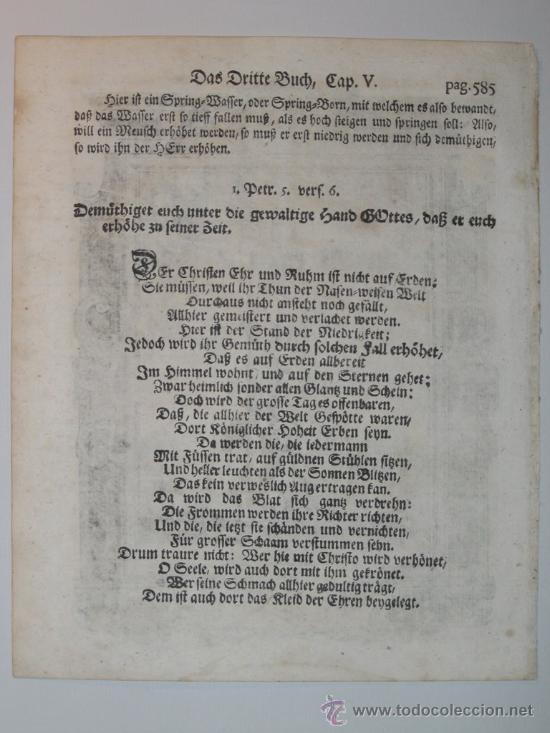 Das Dritte Buch, Cap. V. pag. 585
Hier ist ein Spring-Wasser, oder Spring-Born, mit welchem es also bewandt,
daß das Wasser erst so tieff fallen muß, als es hoch steigen und springen soll: Also,
will ein Mensch erhöhet werden, so muß er erst niedrig werden und sich demüthigen,
so wird ihn der HErr erhöhen.
1. Petr. 5. vers. 6.
Demüthiget euch unter die gewaltige Hand GOttes, daß er euch
erhöhe zu seiner Zeit.
DEr Christen Ehr und Ruhm ist nicht auf Erden;
Sie müssen, weil ihr Thun der Nasen-weisen Welt
Durchaus nicht ansteht noch gefällt,
Allhier gemeistert und verlachet werden.
Hier ist der Stand der Niedrigkeit;
Jedoch wird ihr Gemüth durch solchen Fall erhöhet,
Daß es auf Erden allbereit
Im Himmel wohnt, und auf den Sternen gehet;
Zwar heimlich sonder allen Glantz und Schein:
Doch wird der grosse Tag es offenbaren,
Daß, die allhier der Welt Gespötte waren,
Dort Königlicher Hoheit Erben seyn.
Da werden die, die iedermann
Mit Füssen trat, auf güldnen Stühlen sitzen,
Und heller leuchten als der Sonnen Blitzen,
Das kein verweslich Aug ertragen kan.
Da wird das Blat sich gantz verdrehn:
Die Frommen werden ihre Richter richten,
Und die, die ietzt sie schänden und vernichten,
Für grosser Schaam verstummen sehn.
Drum traure nicht: Wer hie mit Christo wird verhönet,
O Seele, wird auch dort mit ihm gekrönet.
Wer seine Schmach allhier gedultig trägt,
Dem ist auch dort das Kleid der Ehren beygelegt.
© www.todocoleccion.net